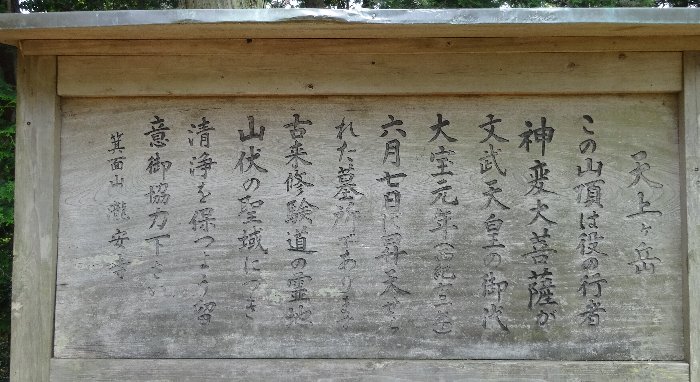 天上ヶ岳
この山頂は役の行者
神変大菩薩が
文武天皇の御代
大宝元年
六月七日に昇天せら
れた墓所であります
古来修験道の霊地
山伏の聖域につき
清浄を保つよう留
意御協力下さい
箕面山 瀧安寺